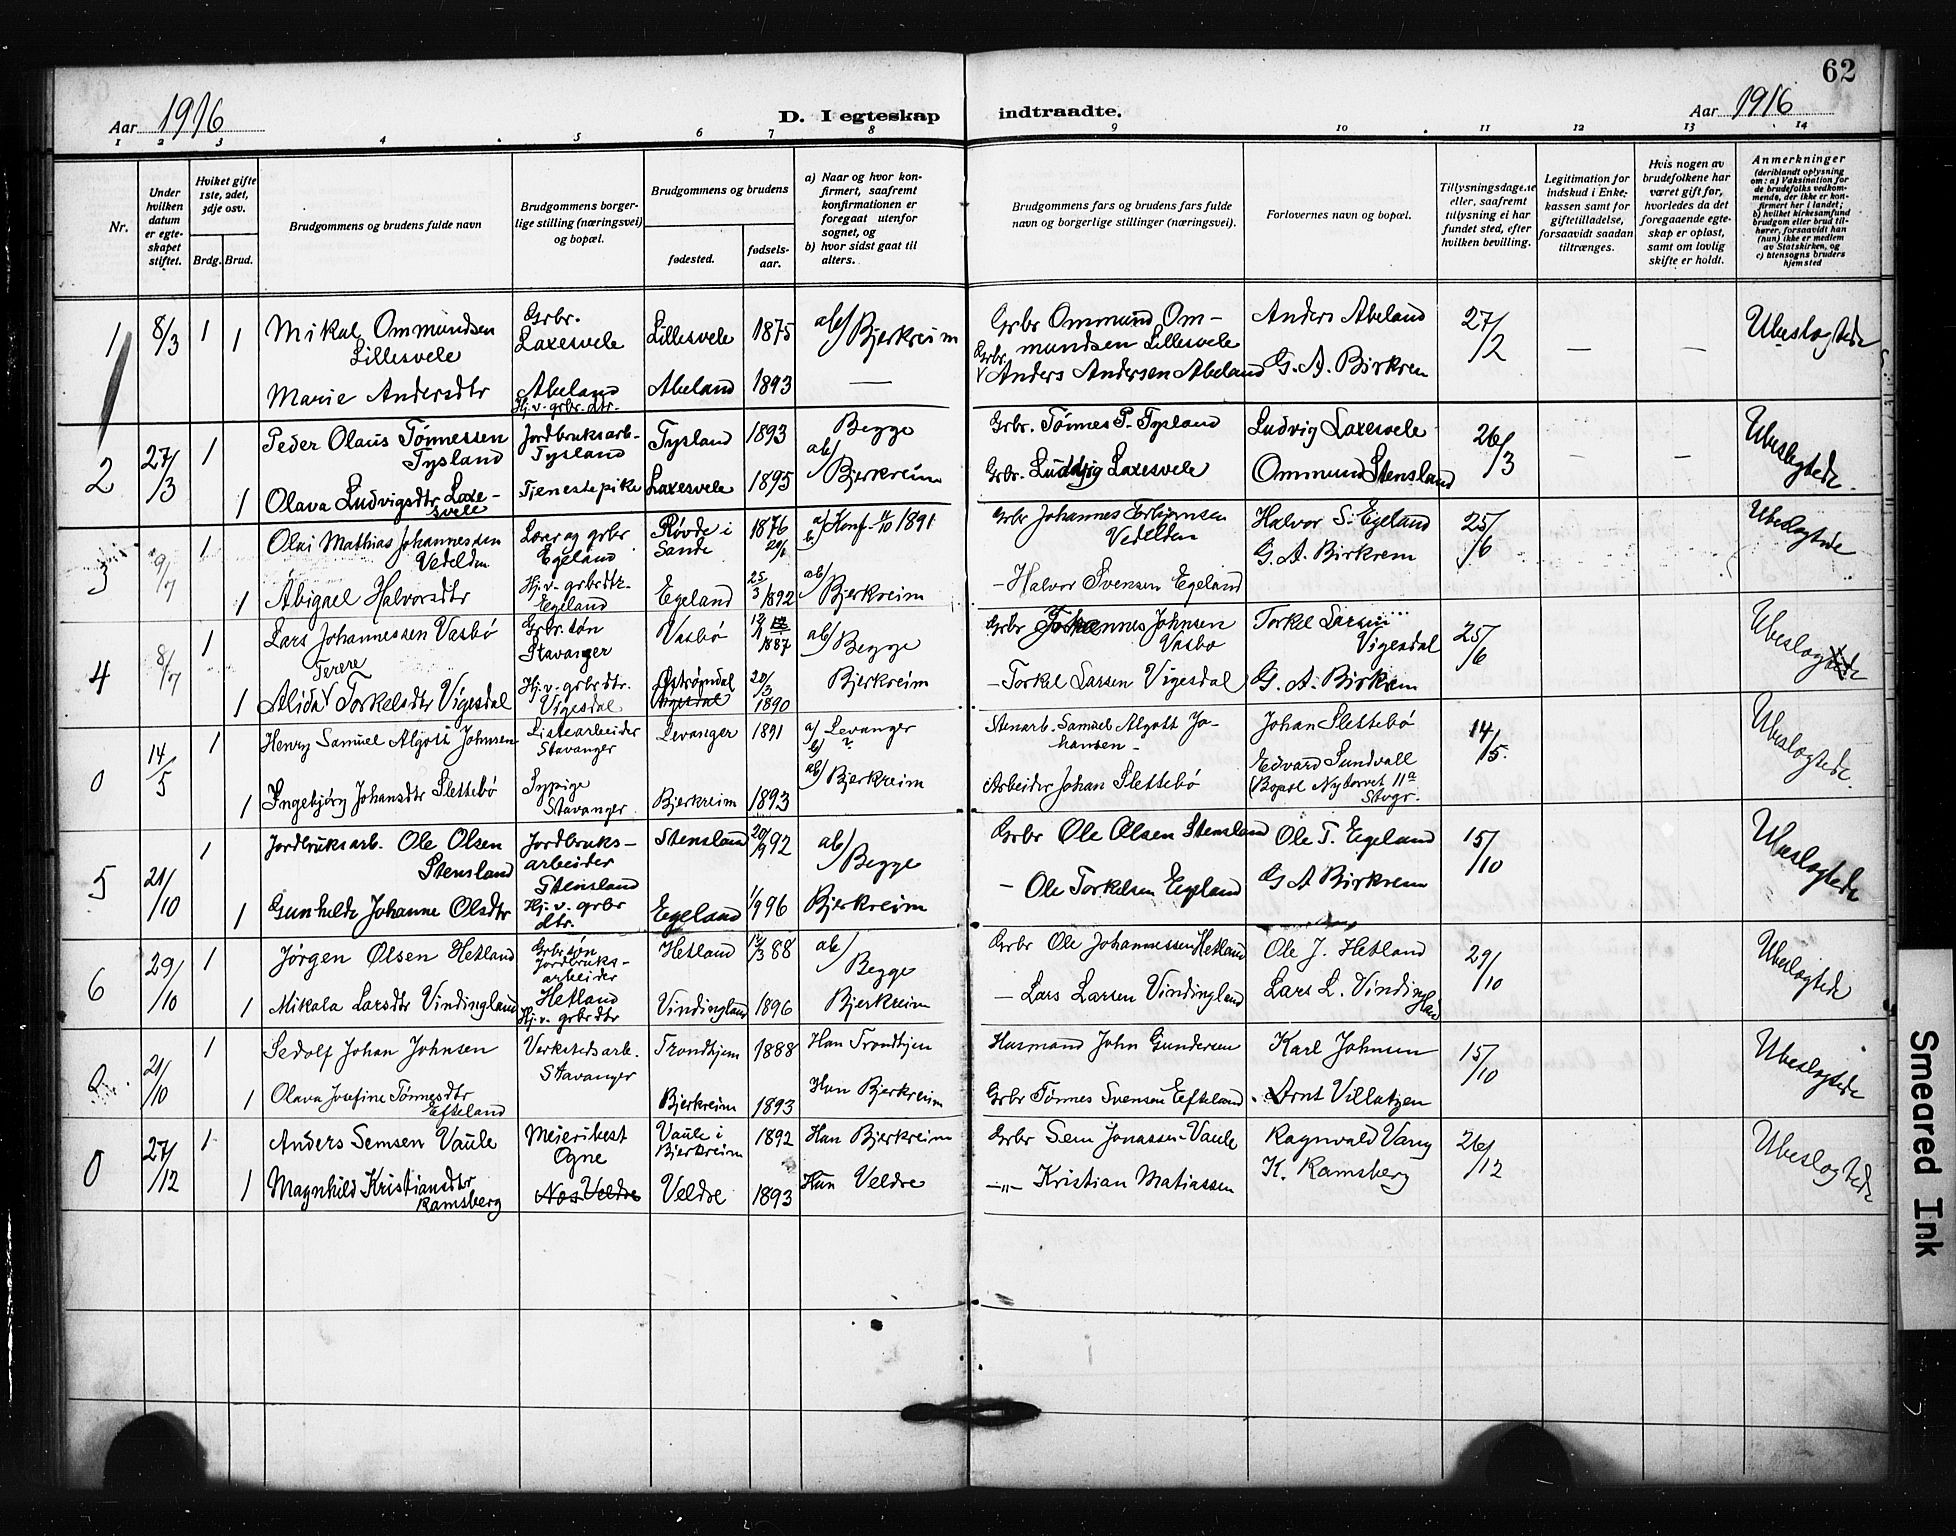 62
Aar 1916 D. I egteskap indtraadte. Aar 1916
1 2 3 4 5 6 7 8 9 10 11 12 13 14
Nr.
Under hvilken datum er egteskapet stiftet.
Hviket gifte 1ste, 2det, 3dje osv.
Brdg. Brud.
Brudgommens og brudens fulde navn
Brudgommens borgerlige stilling (næringsvei) og bopæl.
Brudgommens og brudens
fødested.
fødselsaar.
a) Naar og hvor konfirmert, saafremt konfirmationen er foregaat utenfor sognet, og
b) hvor sidst gaat til alters.
Brudgommens fars og brudens fars fulde navn og borgerlige stillinger (næringsvei).
Forlovernes navn og bopæl.
Tillysningsdagene eller, saafremt tillysning ei har fundet sted, efter hvilken bevilling.
Legitimation for indskud i Enkekassen samt for giftetilladelse, forsaavidt saadan tiltrænges.
Hvis nogen av brudefolkene har været gift før, hvorledes da det foregaaende egteskap er opløst, samt om lovlig skifte er holdt.
Anmerkninger (deriblandt oplysning om: a) Vaksination for de brudefolks vedkommende, der ikke er konfirmert her i landet; b) hvilket kirkesamfund brudgom eller brud tilhører, forsaavidt han (hun) ikke er medlem av Statskirken, og c) utensogns bruders hjemsted
1 8/3 1 Mikal Ommundsen Lillesvele Grbr. Laxesvele Lillesvele 1875 ab/ Bjerkreim Grbr Ommund Ommundsen Lillesvele Anders Abeland 27/2 — — Ubeslogtede
1 Marie Andersdtr Abeland Hj. v. grbr. dtr. Abeland 1893 — Grbr. Anders Andersen Abeland G. A. Birkrem
2 27/3 1 Peder Olaus Tönnessen Tysland Jordbruksarb. Tysland Tysland 1893 Begge ab/ Bjerkreim Grbr. Tønnes P. Tysland Ludvig Laxesvele 26/3 - - Ubeslogtede.
1 Olava Ludvigsdtr Laxesvele Tjenestepike Laxesvele 1895 Grbr. Ludvig Laxesvele Ommund Stensland
3 9/7 1 Olai Mathias Johannessen Vedelden Lærer og grbr Egeland Røvde i Sande 1876 20/1 a/ Konf. 11/10 1891 b/ Grbr Johannes Torbjørnsen Vedelden Halvor S. Egeland 25/6 Ubeslogtede
1 Abigael Halvorsdtr Hj. v. grbrdtr. Egeland Egeland 25/3 1892 ab/ Bjerkreim — Halvor Svensen Egeland G. A. Birkrem
4 8/7 1 Lars Johannessen Vasbö Grbr. søn Stavanger Vasbö 1887 ab/ Begge Bjerkreim Grbr Johannes Johnsen Vasbo Torkel Larsen Vigesdal 25/6 Ubeslogtede
1 Alida Terere Torkelsdtr Vigesdal Hj. v. grbrdtr. Vigesdal Østrømdal 20/3 1890 — Torkel Larsen Vigesdal G. A. Birkrem
0 14/5 1 Henry Samuel Algott Johnsen Listearbeider Stavanger Levanger 1891 a/ Levanger b/ ? Stenarb. Samuel Algott Johansen - Johan Slettebö 14/5. Ubeslogtede.
1 Ingebjörg Johansdtr Slettebö Sypige Stavanger Bjerkreim 1893 ab/ Bjerkreim Arbeider Johan Slettebö Edvard Sundvall (Bopæl Nytorvet 11a Stvgr.
5 21/10 1 Jordbruksarb. Ole Olsen Stensland Jordbruksarbeider Stensland Stensland 20/9 92 ab/ Begge Grbr Ole Olsen Stensland Ole T. Egeland 15/10 Ubeslogtede
1 Gunhilde Johanne Olsdtr Hj. v. grbr dtr. Egeland 1/9 96 Bjerkreim — Ole Torkelsen Egeland G A Birkrem
6 29/10 1 Jörgen Olsen Hetland Grbrsøn Jordbruksarbeider Hetland Hetland 12/3 88 ab/ Begge Grbr Ole Johannessen Hetland Ole J. Hetland 29/10 Ubeslogtede
1 Mikala Larsdtr Vindingland Hj. v. grbrdtr Vindingland 1896 Bjerkreim — Lars Larsen Vindingland Lars L. Vindingland
0 21/10 1 Sedolf Johan Johnsen Verkstedsarb. Stavanger Trondhjem 1888 Han Trondhjem Husmand John Gundersen Karl Johnsen 15/10 Ubeslogtede
1 Olava Josefine Tönnesdtr Efteland Bjerkreim 1893 Hun Bjerkreim Grbr Tönnes Svensen Efteland Arnt Villatzen
0 27/12 1 Anders Semsen Vaule Meieribest Ogne Vaule i Bjerkreim 1892 Han Bjerkreim Grbr Sem Jonassen Vaule Ragnvald Vang 26/12 Ubeslogtede
1 Magnhild Kristiansdtr Ramsberg Nes Veldre Veldre 1893 Hun Veldre —„— Kristian Matiassen K. Ramsberg
Smeared Ink